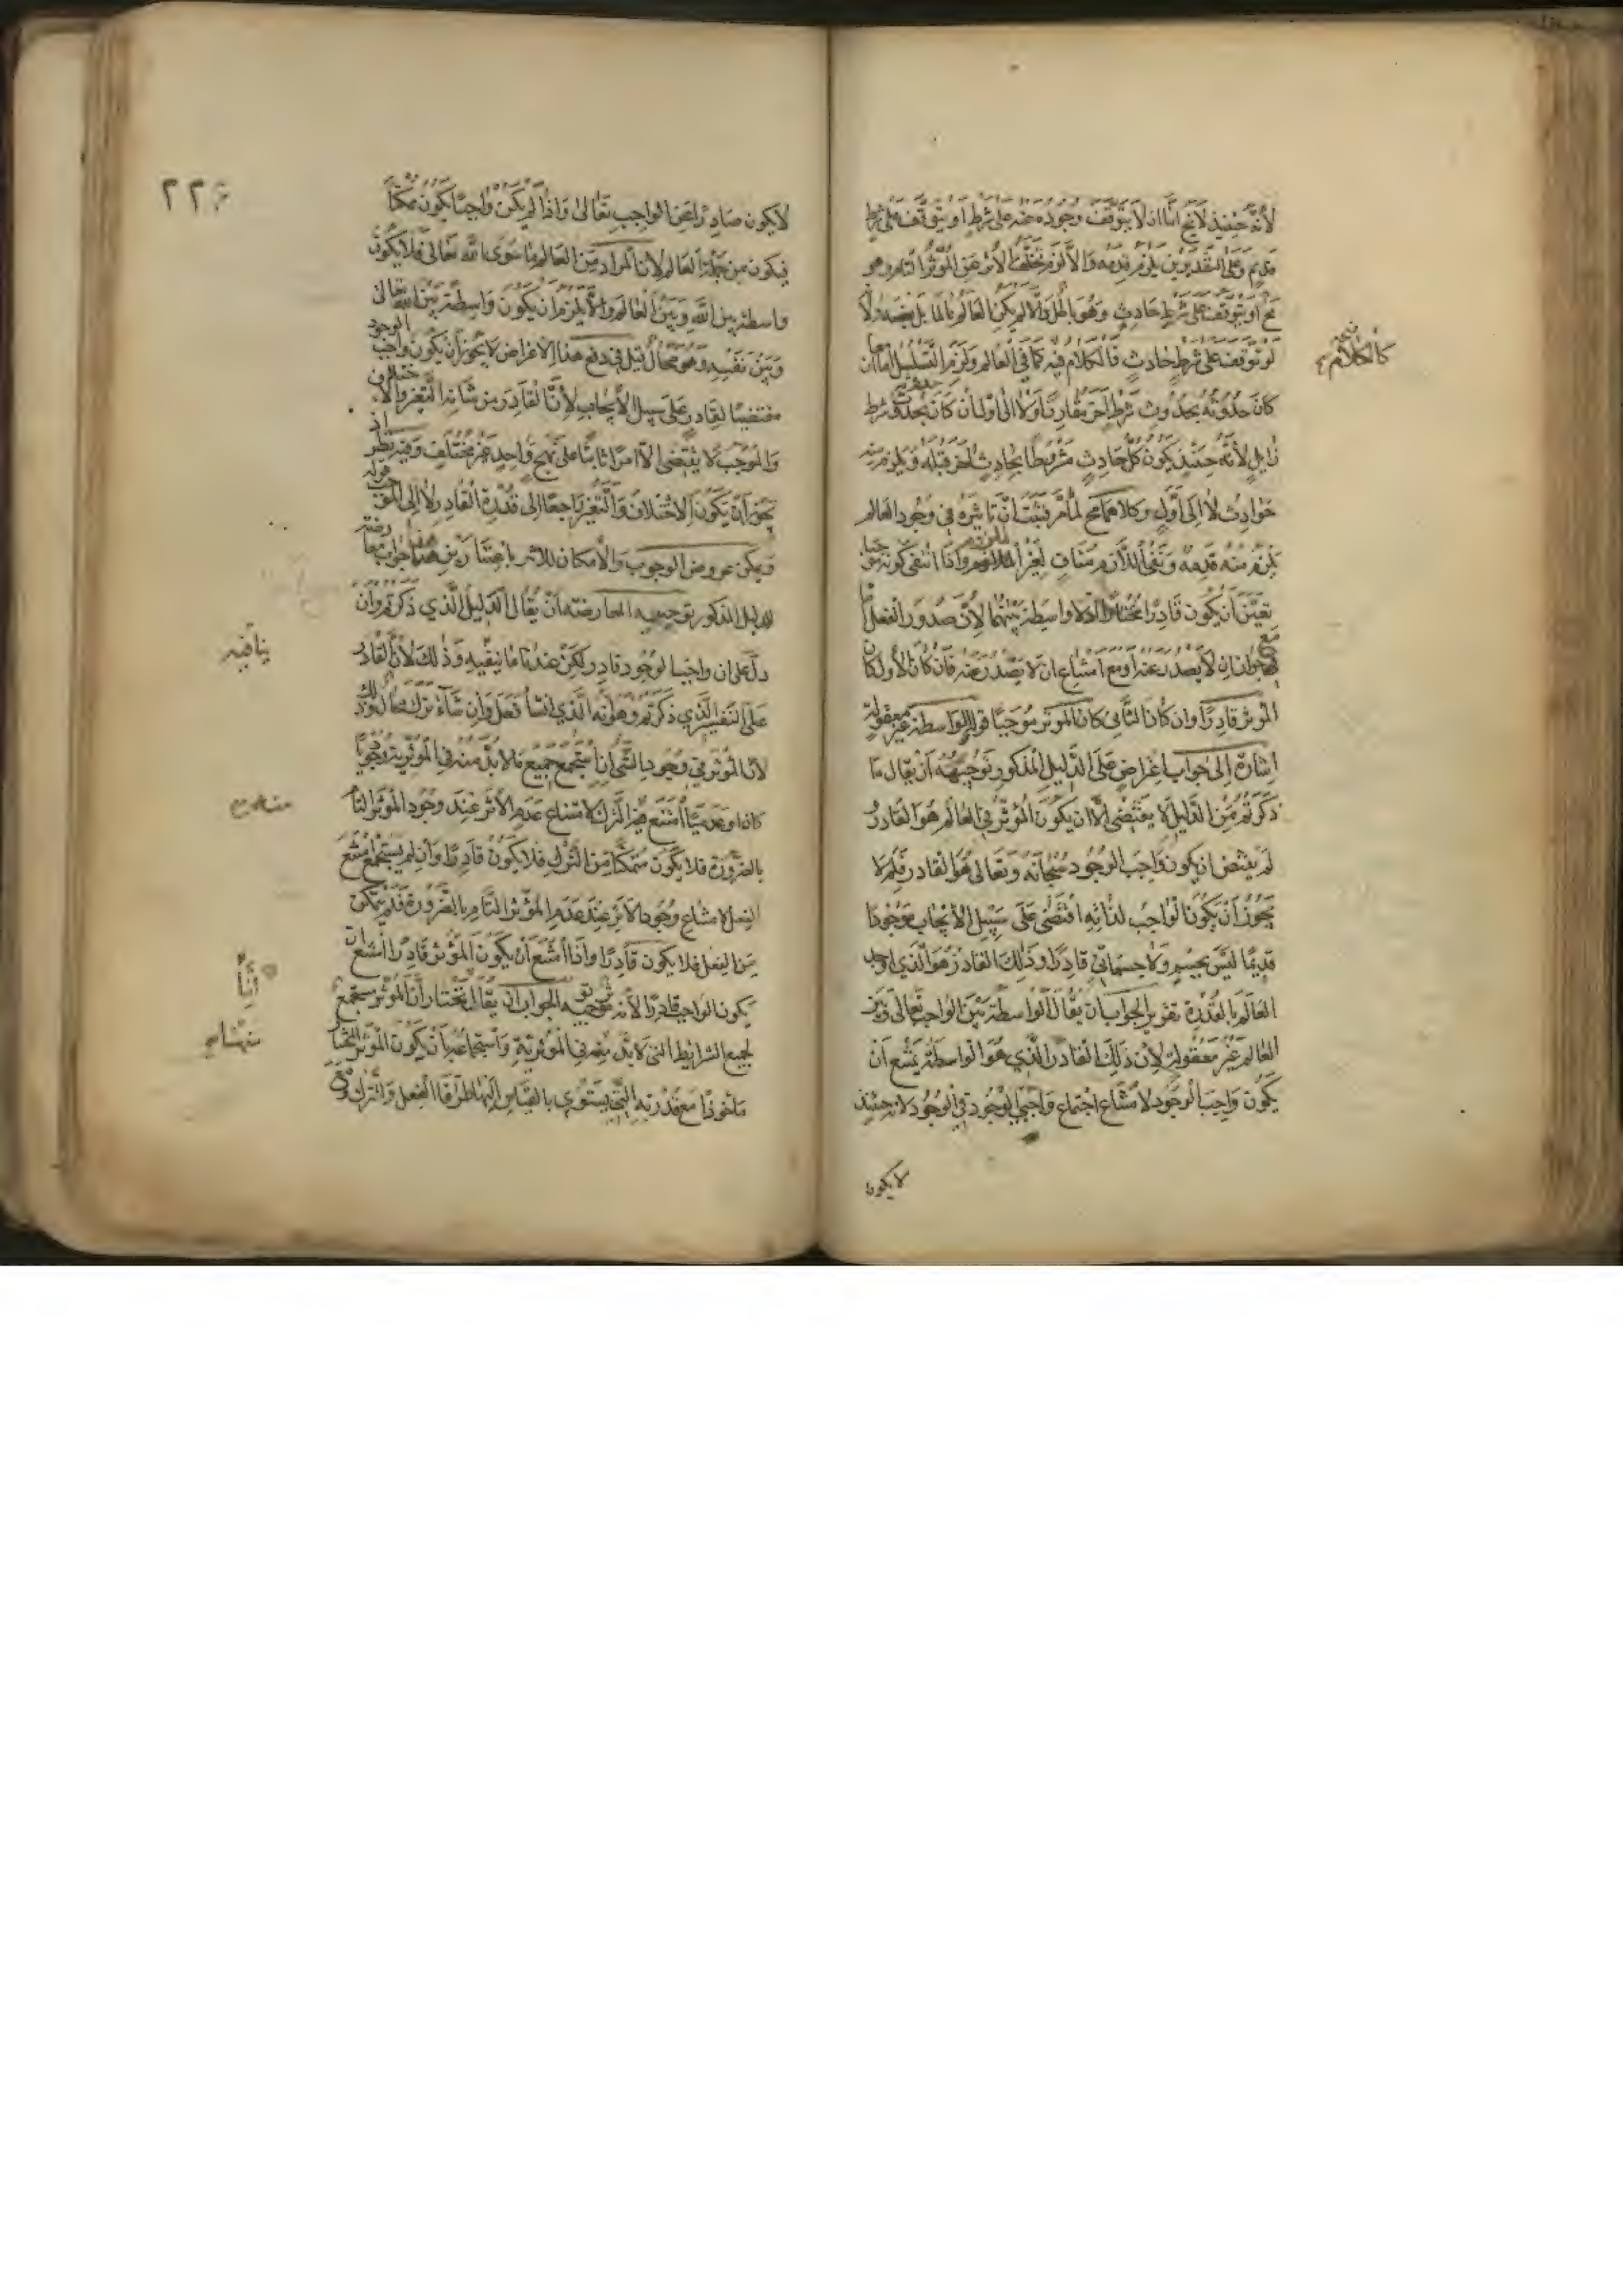 لأنه حينئذ لا يخ اما ان لا يتوقف وجوده عنه على شرط او يتوقف على شرط
قديم وعلى التقديرين يلزم قدمه والا لزم تخلف الأثر عن المؤثر التام وهو
مح او يتوقف على شرط حادث وهو باطل والا لم يكن العالم بل بعضه ولا
لو توقف على شرط حادث فالكلام فيه كما في العالم ولزم التسلسل اما ان
كان حدوثه بحدوث شرط آخر مقارنا ولا الى اول ان كان بحدوث شرط
زايل لأنه حينئذ يكون كل حادث مشروطا بحادث آخر قبله ويلزم منه
حوادث لا الى أول وكلاهما مح لما مر فثبت ان تاثيره في وجود العالم
يلزم منه قدمه ونفى اللازم مناف لغير الملزوم واذا انتفى كونه
تعين ان يكون قادرا مختارا اذ لا واسطة بينهما لأن صدور الفعل
مع جواز ان لا يصدر عنه او مع امتناع ان لا يصدر عنه فان كان الأول كان
المؤثر قادرا وان كان الثاني كان المؤثر موجبا قوله والواسطة غير معقولة
اشارة إلى جواب اعتراض على الدليل المذكور توجيهه ان يقال ما
ذكرتم من الدليل لا يقتضى الا ان يكون المؤثر في العالم هو القادر
لم يقتض ان يكون واجب الوجود سبحانه وتعالى هو القادر فلم لا
يجوز أن يكون الواجب لذاته اقتضى على سبيل الايجاب موجودا
قديما ليس بجسم ولا جسماني قادرا وذلك القادر هو الذي اوجد
العالم بالقدرة تقرير الجواب ان يقال الواسطة بين الواجب تعالى وبين
العالم غير معقولة لأن ذلك القادر الذي هو الواسطة يمتنع أن
يكون واجب الوجود لامتناع اجتماع واجبي الوجود في الوجود لأنه حينئذ
لا يكون
كالكلام
٢٢۶
لا يكون صادرا عن الواجب تعالى واذا لم يكن واجبا يكون ممكنا
فيكون من جملة العالم لأن المراد من العالم ما سوى الله تعالى فلا يكون
واسطة بين الله وبين العالم والا يلزم ان يكون واسطة بين الله تعالى
وبين نفسه وهو محال قيل في دفع هذا الاعتراض لا يجوز أن يكون واجب الوجود
مقتضيا لقادر على سبيل الأيجاب لأن القادر من شانه التغير والاختلاف
والموجب لا يقتضى الا امرا ثابتا على نهج واحد غير مختلف وفيه نظر اذ
يجوز أن يكون الاختلاف والتغير راجعا إلى قدرة القادر لا إلى الموجب قوله
ويمكن عروض الوجوب والأمكان للأثر باعتبارين هذا جواب معارضة
للدليل المذكور توجيه المعارضة أن يقال الدليل الذي ذكرتم وان
دل على ان واجب الوجود قادر لكن عندنا ما ينفيه وذلك لأن القادر
على التفسير الذي ذكرتم وهو أنه الذي ان شاء فعل وان شاء ترك محال وذلك
لأن المؤثر في وجود الشئ ان استجمع جميع ما لا بد منه في المؤثرية وجوديا
كان او عدميا امتنع الترك لامتناع عدم الأثر عند وجود المؤثر التام
بالضرورة فلا يكون متمكنا من الترك فلا يكون قادرا وان لم يستجمع امتنع
الفعل لامتناع وجود الأثر عند عدم المؤثر التام بالضرورة فلم يتمكن
من الفعل فلا يكون قادرا واذا امتنع أن يكون المؤثر قادرا امتنع ان
يكون الواجب قادرا لأنه مؤثر توجيه الجواب ان يقال نختار أن المؤثر مستجمع
لجميع الشرايط التي لا بد منه في المؤثرية واستجماعه أن يكون المؤثر المختار
ماخوذا مع قدرته التي يستوي بالقياس اليها طرفا الفعل والترك ومع
ينافيه